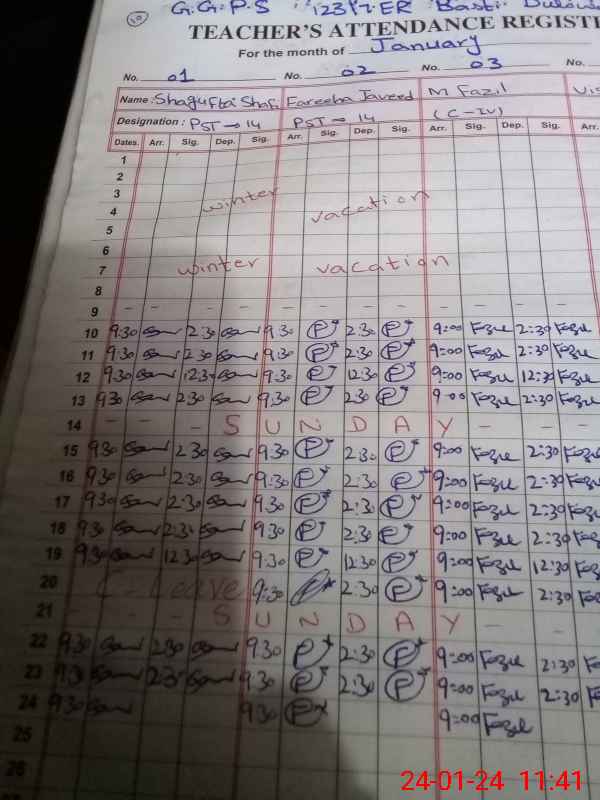 10
G.G.P.S 123/7.ER Basti
TEACHER'S ATTENDANCE REGISTE
For the month of January
No. 01 No. 02 No. 03 No.
Name: Shagufta Shafi Fareeha Javeed M Fazil
Designation: PST → 14 PST → 14 (C-IV)
Dates. Arr. Sig. Dep. Sig. Arr. Sig. Dep. Sig. Arr. Sig. Dep. Sig. Arr.
1
2
3
4 winter vacation
5
6
7 winter vacation
8
9 - - - - - - - - - - -
10 9:30 2:30 9:30 P 2:30 P 9:00 Fazil 2:30 Fazil
11 9:30 2:30 9:30 P 2:30 P 9:00 Fazil 2:30 Fazil
12 9:30 12:30 9:30 P 12:30 P 9:00 Fazil 12:30 Fazil
13 9:30 2:30 9:30 P 2:30 P 9:00 Fazil 2:30 Fazil
14 - - - S U N D A Y - - -
15 9:30 2:30 9:30 P 2:30 P 9:00 Fazil 2:30 Fazil
16 9:30 2:30 9:30 P 2:30 P 9:00 Fazil 2:30 Fazil
17 9:30 2:30 9:30 P 2:30 P 9:00 Fazil 2:30 Fazil
18 9:30 2:30 9:30 P 2:30 P 9:00 Fazil 2:30 Fazil
19 9:30 12:30 9:30 P 12:30 P 9:00 Fazil 12:30 Fazil
20 C-Leave 9:30 P 2:30 P 9:00 Fazil 2:30 Fazil
21 - - - S U N D A Y - - -
22 9:30 2:30 9:30 P 2:30 P 9:00 Fazil 2:30 Fazil
23 9:30 2:30 9:30 P 2:30 P 9:00 Fazil 2:30 Fazil
24 9:30 9:30 P 9:00 Fazil
25
26
24-01-24 11:41